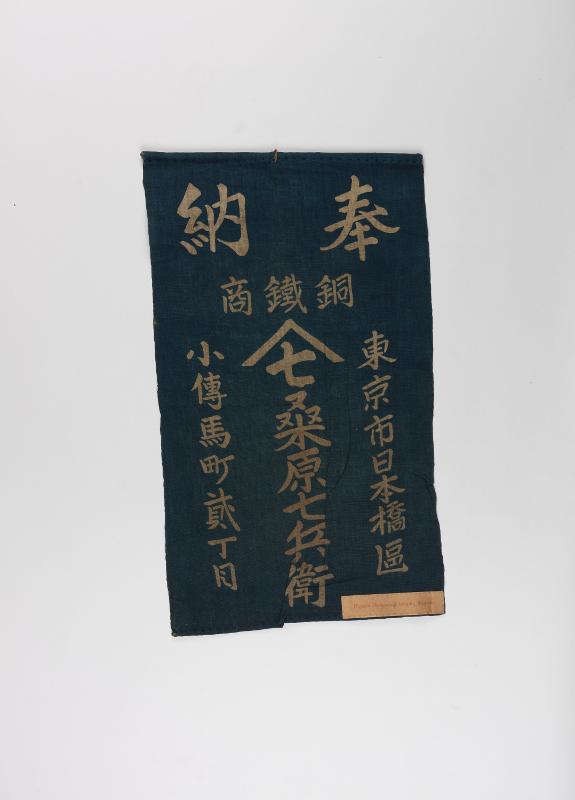 奉納
銅鐵商
東京市日本橋區
七
桑原七兵衛
小傳馬町貳丁目